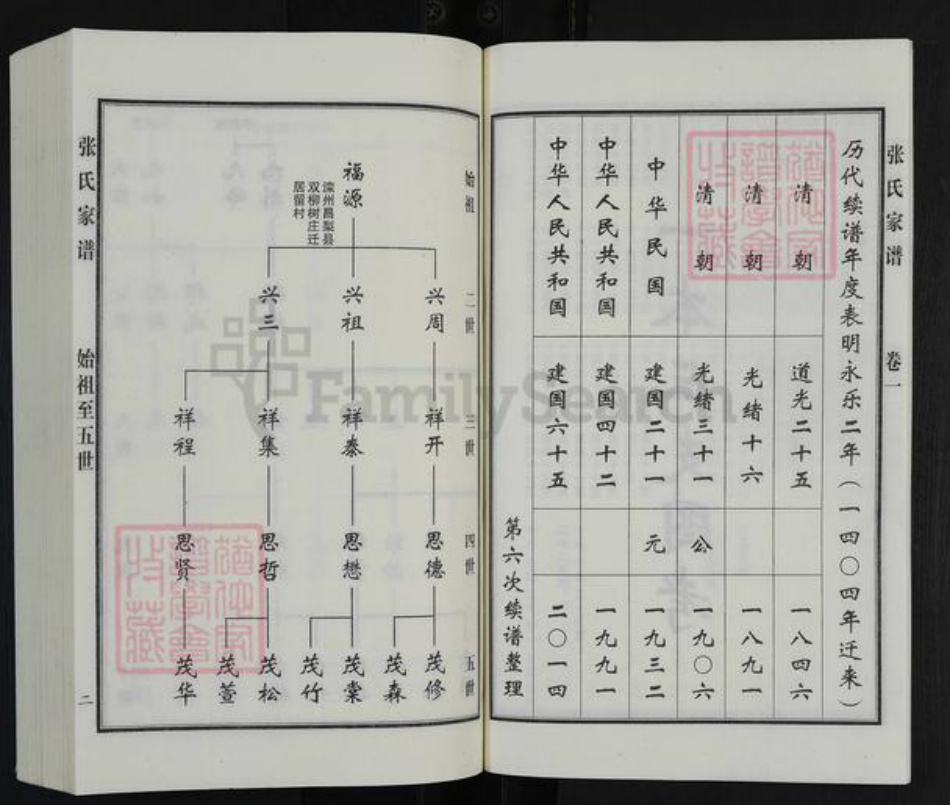 张氏家谱
卷一
历代续谱年度表明永乐二年（一四〇四年迁来）
清朝 道光二十五 一八四六
清朝 光绪十六 一八九一
清朝 光绪三十一 公 一九〇六
中华民国 建国二十一 元 一九三二
中华人民共和国 建国四十二 一九九一
中华人民共和国 建国六十五 二〇一四
第六次续谱整理
始祖
二世
三世
四世
五世
福源
滦州昌梨县
双柳树庄迁
居留村
兴周
兴祖
兴三
祥开
祥泰
祥集
祥程
思德
思懋
思哲
思贤
茂修
茂森
茂棠
茂竹
茂松
茂萱
茂华
张氏家谱
始祖至五世
二
FamilySearch